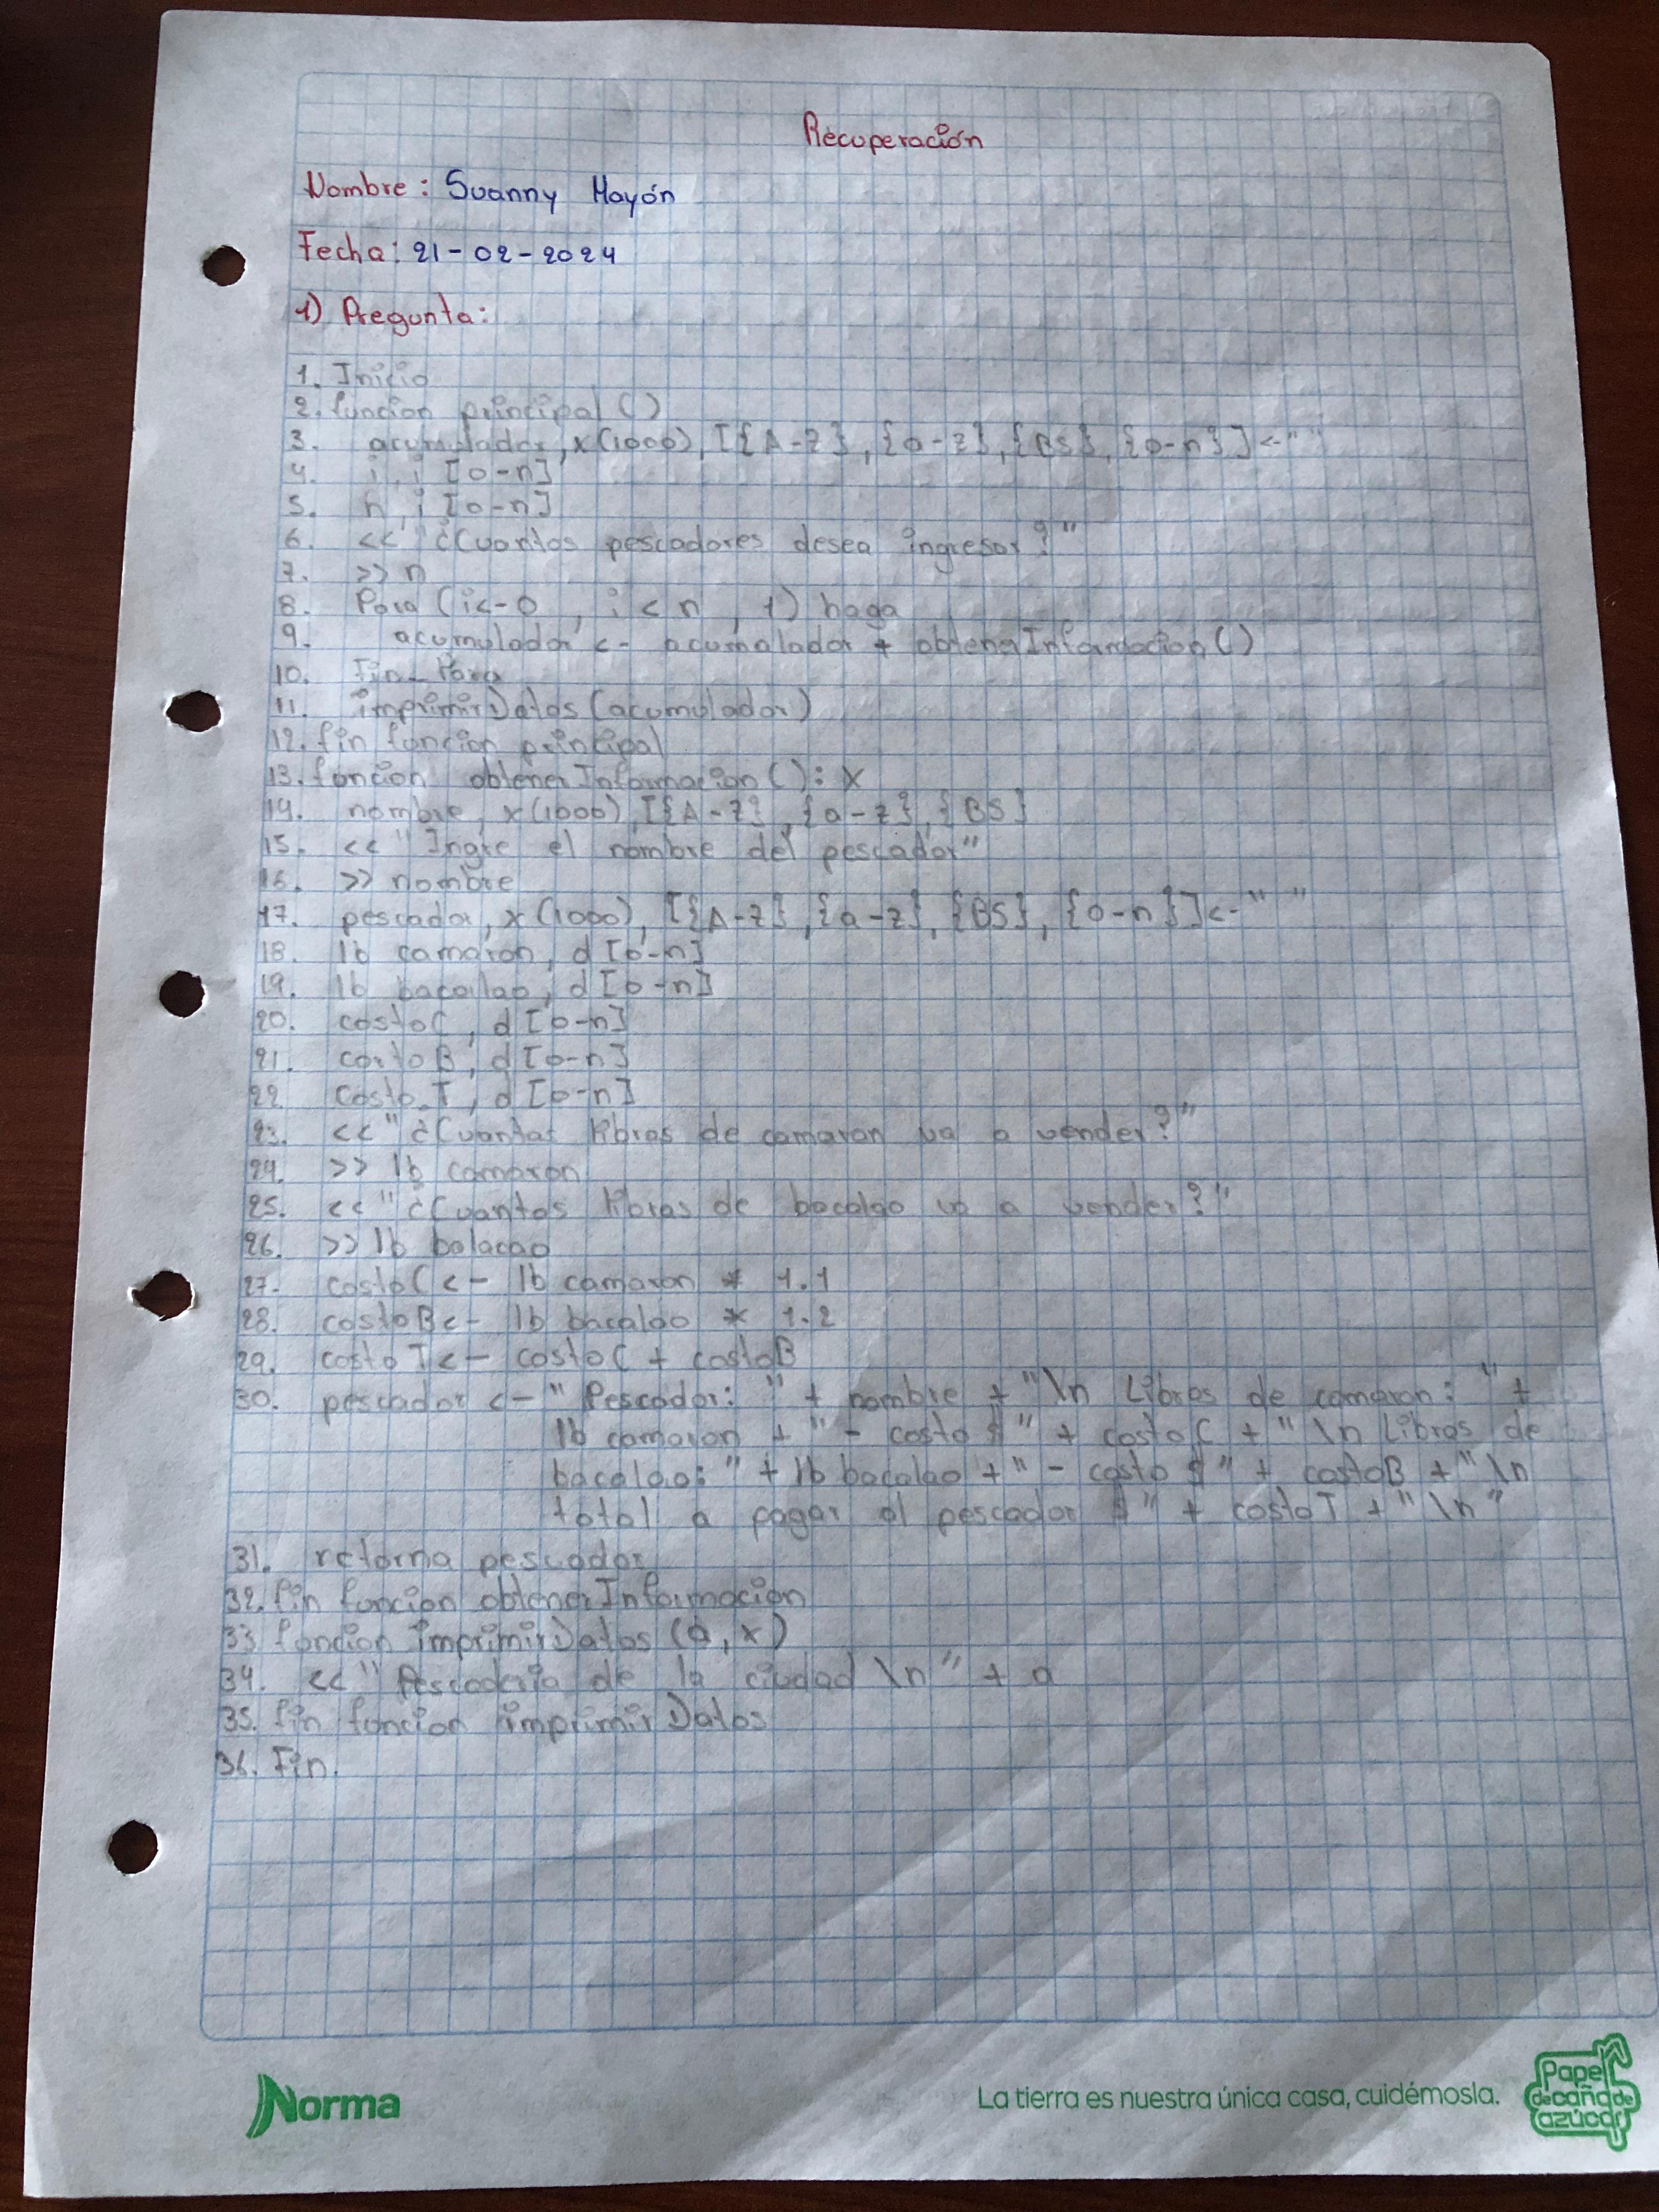 Recuperación
Nombre: Suanny Hoyón
Fecha: 21-02-2024
1) Pregunta:
1. Inicio
2. funcion principal ()
3. acumulador, x(1000), [{A-Z}, {a-z}, {BS}, {0-n}] <- " "
4. i, i [0-n]
5. n, i [0-n]
6. << "¿Cuantos pescadores desea ingresar?"
7. >> n
8. Para (i<-0, i < n, 1) haga
9. acumulador <- acumalador + obtenerInformacion()
10. Fin_Para
11. imprimirDatos (acumulador)
12. fin funcion principal
13. funcion obtenerInformacion(): x
14. nombre, x(1000), [{A-Z}, {a-z}, {BS}
15. << "Ingre el nombre del pescador"
16. >> nombre
17. pescador, x(1000), [{A-Z}, {a-z}, {BS}, {0-n}] <- " "
18. lb camaron, d [0-n]
19. lb bacalao, d [0-n]
20. costoC, d [0-n]
21. costoB, d [0-n]
22. Costo T, d [0-n]
23. << "¿Cuantas libras de camaron va a vender?"
24. >> lb camaron
25. << "¿Cuantos libras de bacalao va a vender?"
26. >> lb balacao
27. costoC <- lb camaron * 1.1
28. costoB <- lb bacalao * 1.2
29. costo T <- costoC + costoB
30. pescador <- " Pescador: " + nombre + "\n Libras de camaron: " +
lb camaron + " - costo $ " + costoC + " \n Libras de
bacalao: " + lb bacalao + " - costo $ " + costoB + " \n
total a pagar al pescador $ " + costoT + " \n "
31. retorna pescador
32. fin funcion obtenerInformacion
33. funcion imprimirDatos (a, x)
34. << " Pescaderia de la ciudad \n " + a
35. fin funcion imprimir Datos
36. Fin.
Norma
La tierra es nuestra única casa, cuidémosla.
Papel
de caña de
azúcar